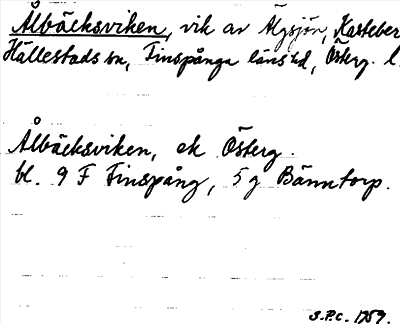 Ålbäcksviken, vik av Ägsjön, Kasteber
Hällestads sn, Finspånga länshd, Österg. l.
Ålbäcksviken, ek Österg.
bl. 9 F Finspång, 5 g Bänntorp.
S.P.C. 1959.